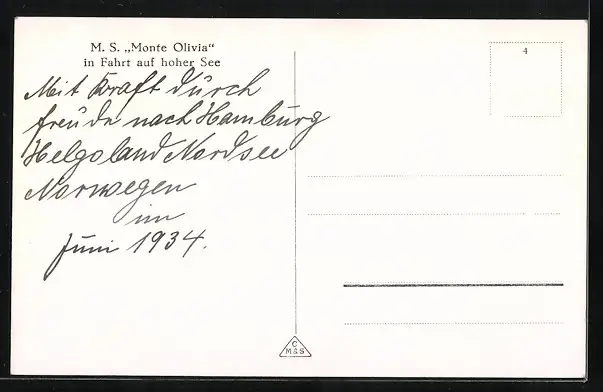 M. S. „Monte Olivia“
in Fahrt auf hoher See
Mit Kraft durch
freude nach Hamburg
Helgoland Nordsee
Norwegen
im
Juni 1934.
4
C
M&S